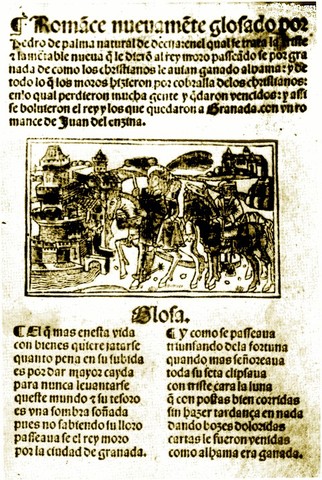 ¶ Romãce nueuamẽte glosado por
Pedro de palma natural de en el qual se trata la triste
& lamẽtable nueua q̃ le dierõ al rey moro passeãdo se por gra
nada de como los christianos le auian ganado alhama: y de
todo lo q̃ los moros hizieron por cobralla delos christianos:
en lo qual perdieron mucha gente y q̃daron vencidos: y assi
se boluieron el rey y los que quedaron a Granada. con vn ro
mance de Juan del enzina.
Glosa.
¶ El q̃ mas enesta vida
con bienes quiere jatarse
quanto pena en su subida
es por dar mayor cayda
para nunca leuantarse
queste mundo & su tesoro
es vna sombra soñada
pues no sabiendo su lloro
passeaua se el rey moro
por la ciudad de granada.
¶ Y como se passeaua
triunfando dela fortuna
quando mas señoreaua
toda su seta clipsaua
con triste cara la luna
q̃ con postas bien corridas
sin hazer tardança en nada
dando bozes doloridas
cartas le fueron venidas
como alhama era ganada.